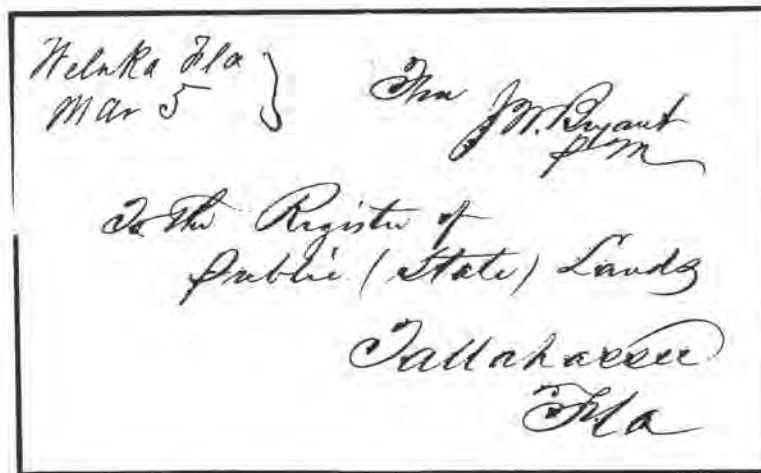 Welaka Fla
Mar 5
Free J.W. Bryant
P M
To The Register of
Public (State) Lands
Tallahassee
Fla